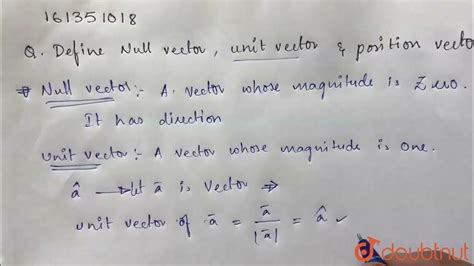 161351018
Q. Define Null vector, unit vector & position vecto
Null vector :- A vector whose magnitude is Zero.
It has direction
Unit vector :- A vector whose magnitude is one.
â → let ā is vector ⇒
unit vector of ā = ā / |ā| = â ✓
doubtnut